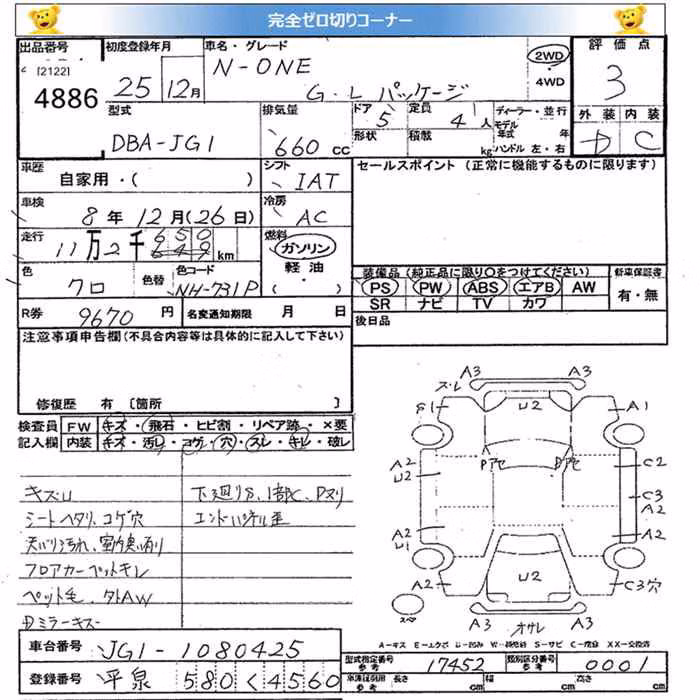 完全ゼロ切りコーナー
出品番号 初度登録年月 車名・グレード 評価点
[2122] 4886
25 12月
N-ONE
G・Lパッケージ
2WD・4WD
3
型式 排気量 ドア 定員 ディーラー・並行 外装 内装
DBA-JG1 660cc 5 4人 モデル年式 年 D C
形状 積載 kg ハンドル 左・右
車歴 シフト セールスポイント(正常に機能するものに限ります)
自家用・( ) IAT
車検 冷房
8年12月(26日) AC
走行 燃料
11万2千650 km ガソリン
649
軽油
( )
色 色替 色コード
クロ NH-731P
装備品(純正品に限り○をつけてください) 新車保証書
PS PW ABS エアB AW 有・無
SR ナビ TV カワ
R券 9670円 名変通知期限 月 日
後日品
注意事項申告欄(不具合内容等は具体的に記入して下さい)
修復歴 有 [箇所 ]
検査員 FW キズ・飛石・ヒビ割・リペア跡・×要
記入欄 内装 キズ・汚レ・コゲ・穴・スレ・キレ・破レ
キズU
シートヘタリ、コゲ穴
天バリ汚れ、
フロアカーペットキレ
ペット毛、外AW
ミラーキズ
下廻りS、1部C、Pヌリ
エンドパネル歪
A3 A3
スレ
S1 U2 A1
Pアセ Pアセ
A2 C2
U2
C3
A2
A2 A2
U1
A2 U2 C3穴
スペ
A3 A3
オサレ
A-キズ E-エクボ U-凹み W-補修跡 S-サビ C-腐食 XX-交換済
車台番号 JG1-1080425
型式指定番号 参考 17452 類別区分番号 参考 0001
登録番号 平泉 580 く 4560
車凍証明用 参考 長さ cm 幅 cm 高さ cm